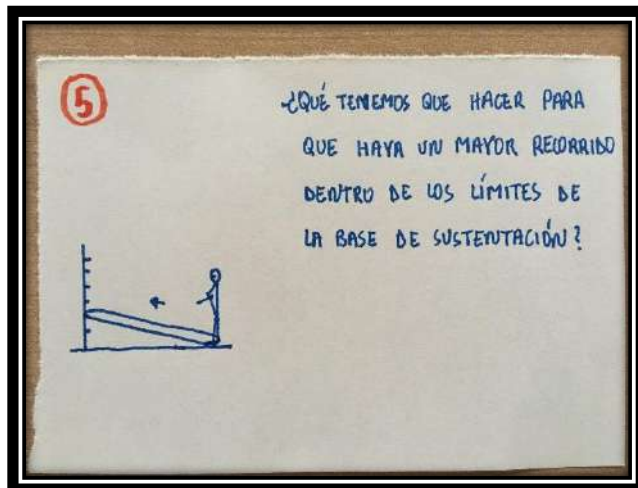 5
¿QUÉ TENEMOS QUE HACER PARA
QUE HAYA UN MAYOR RECORRIDO
DENTRO DE LOS LÍMITES DE
LA BASE DE SUSTENTACIÓN?